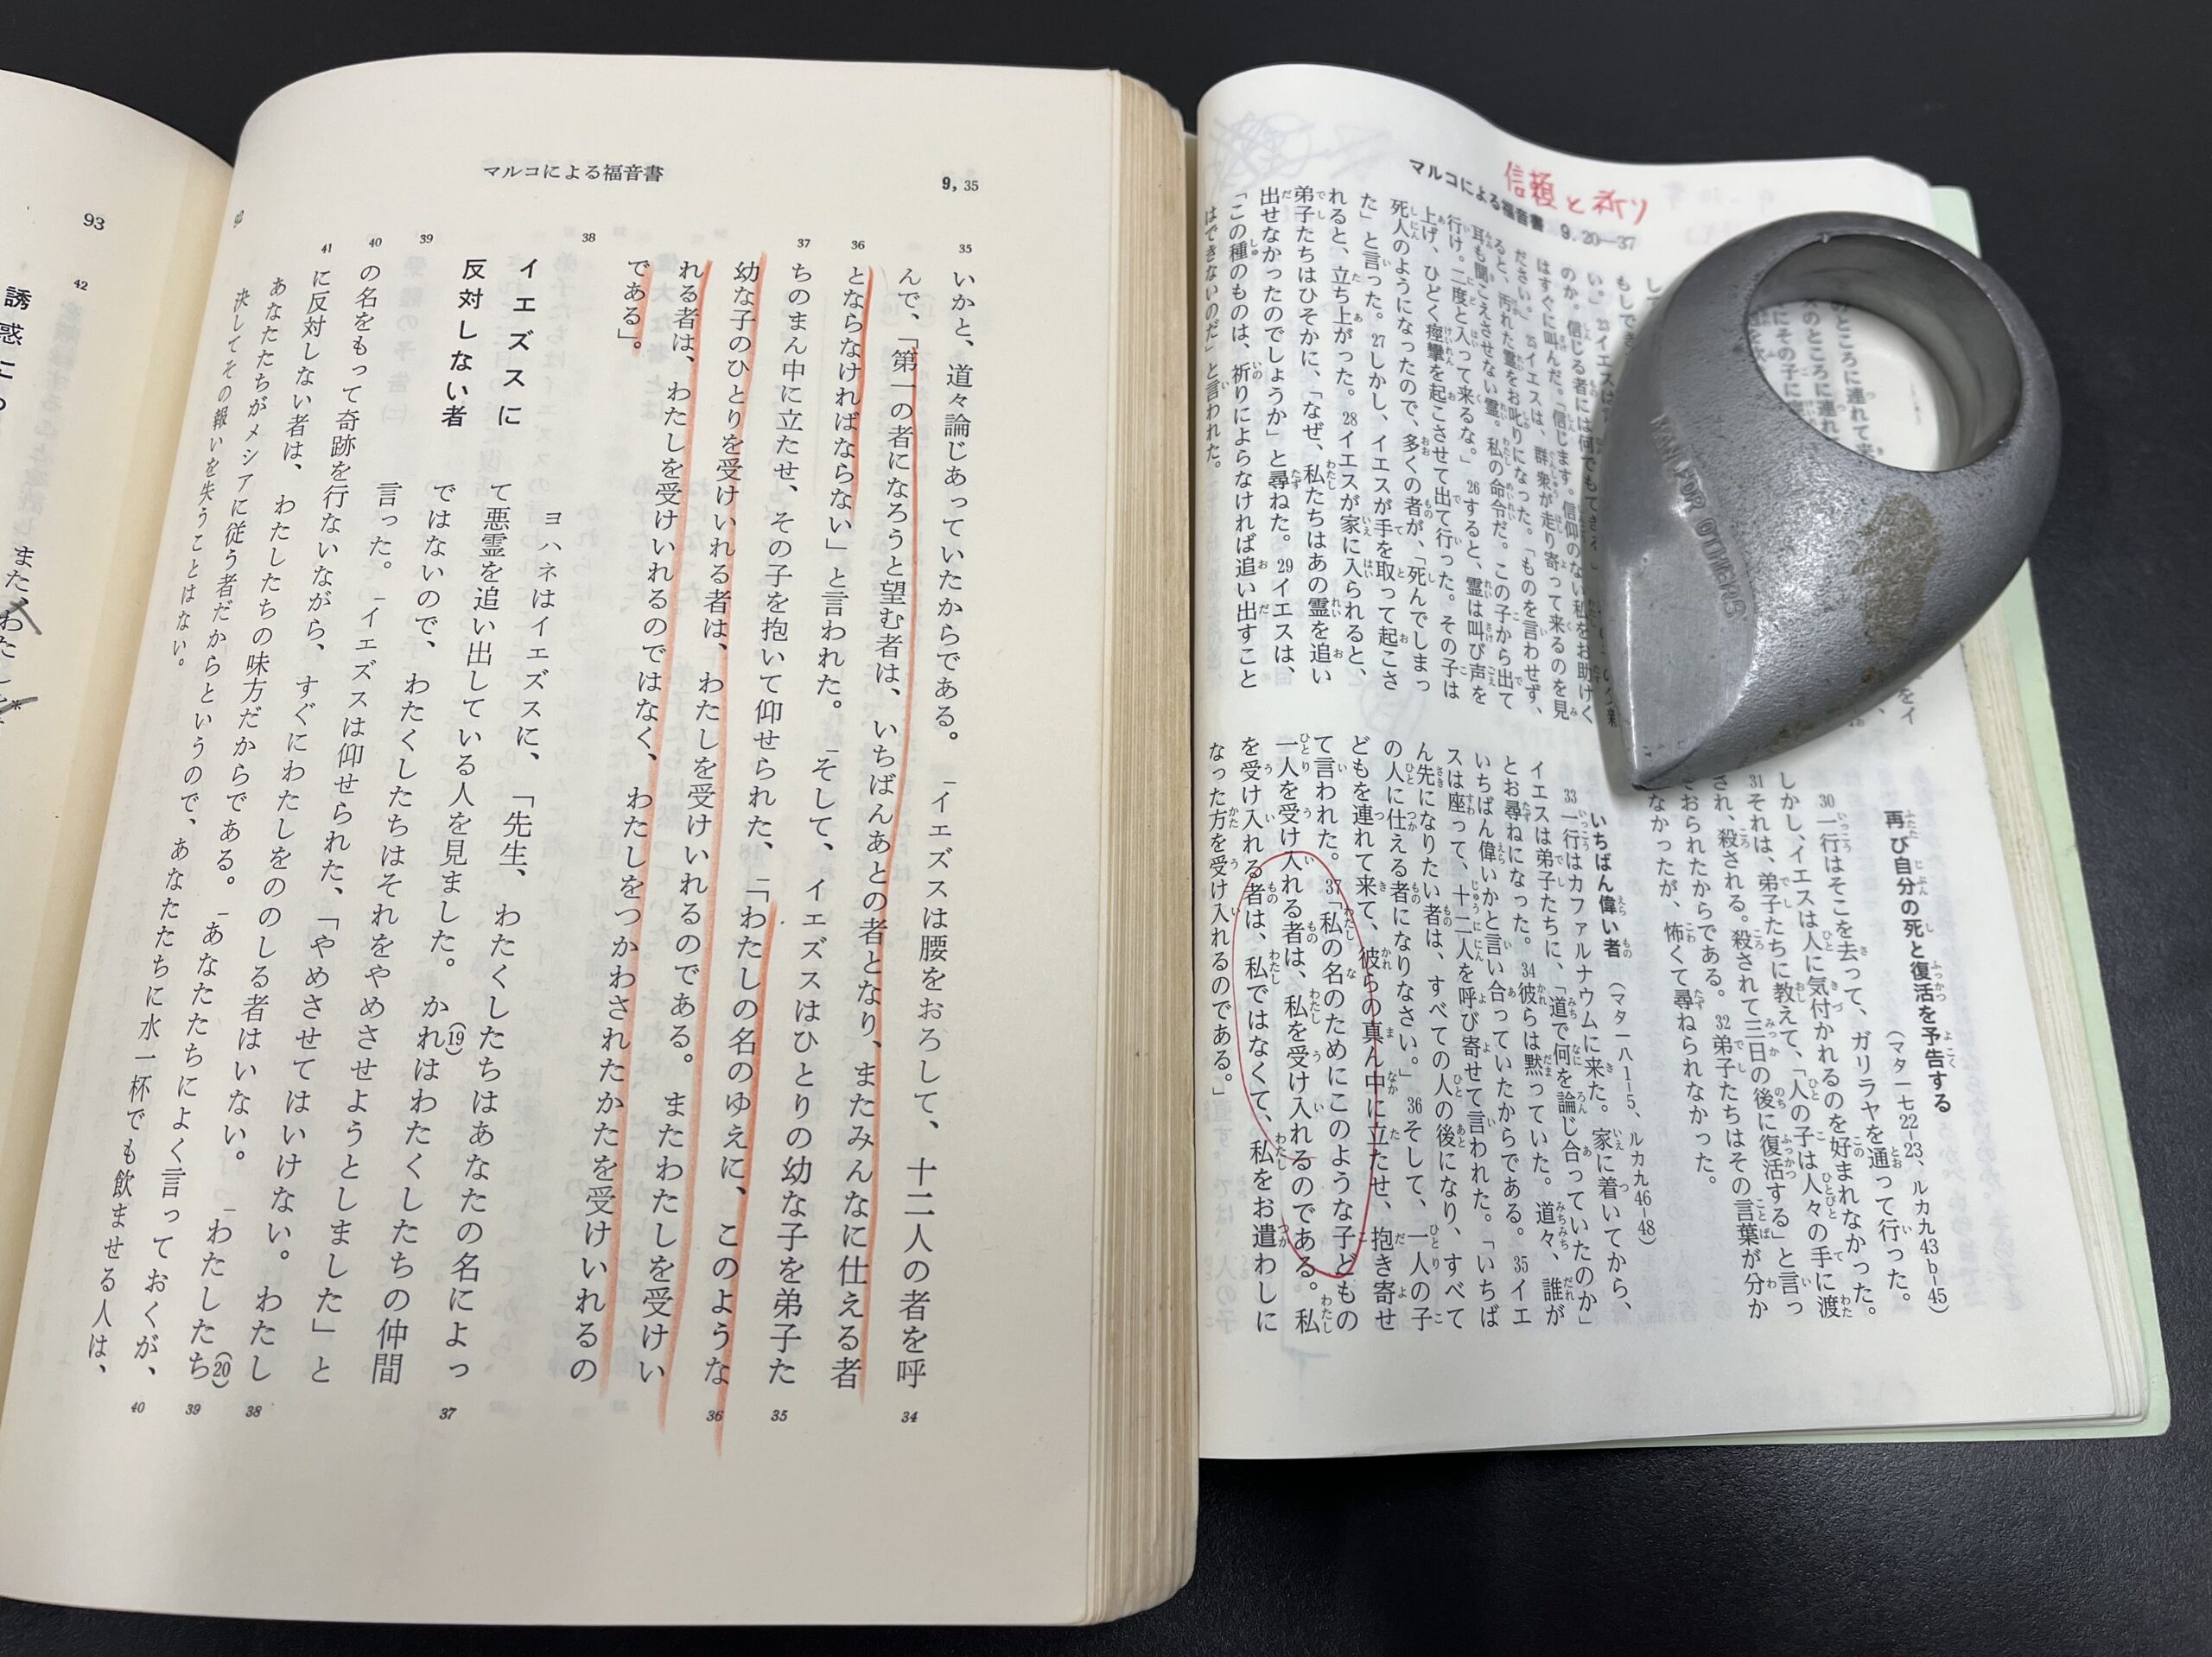 93
42
誘惑に
また、わた
マルコによる福音書
9, 35
35
いかと、道々論じあっていたからである。 イエズスは腰をおろして、十二人の者を呼
34
んで、「第一の者になろうと望む者は、いちばんあとの者となり、またみんなに仕える者
36
とならなければならない」と言われた。 そして、イエズスはひとりの幼な子を弟子た
35
37
ちのまん中に立たせ、その子を抱いて仰せられた、「わたしの名のゆえに、このような
36
幼な子のひとりを受けいれる者は、わたしを受けいれるのである。またわたしを受けい
れる者は、わたしを受けいれるのではなく、わたしをつかわされたかたを受けいれるの
である」。
イエズスに
反対しない者
38
ヨハネはイエズスに、「先生、わたくしたちはあなたの名によっ
37
て悪霊を追い出している人を見ました。かれはわたくしたちの仲間
(19)
39
ではないので、わたくしたちはそれをやめさせようとしました」と
言った。 イエズスは仰せられた、「やめさせてはいけない。わたし
38
40
の名をもって奇跡を行ないながら、すぐにわたしをののしる者はいない。 わたしたち
(20)
39
41
に反対しない者は、わたしたちの味方だからである。 あなたたちによく言っておくが、
40
あなたたちがメシアに従う者だからというので、あなたたちに水一杯でも飲ませる人は、
決してその報いを失うことはない。
信頼と祈り
マルコによる福音書 9.20―37
い。」 23イエスは
のか。信じる者には何でもできる。」
はすぐに叫んだ。「信じます。信仰のない私をお助けく
ださい。」 25イエスは、群衆が走り寄って来るのを見
ると、汚れた霊をお叱りになった。「ものを言わせず、
耳も聞こえさせない霊。私の命令だ。この子から出て
行け。二度と入って来るな。」 26すると、霊は叫び声を
上げ、ひどく痙攣を起こさせて出て行った。その子は
死人のようになったので、多くの者が、「死んでしまっ
た」と言った。 27しかし、イエスが手を取って起こさ
れると、立ち上がった。 28イエスが家に入られると、
弟子たちはひそかに、「なぜ、私たちはあの霊を追い
出せなかったのでしょうか」と尋ねた。 29イエスは、
「この種のものは、祈りによらなければ追い出すこと
はできないのだ」と言われた。
再び自分の死と復活を予告する
(マタ一七22―23、ルカ九43b―45)
30一行はそこを去って、ガリラヤを通って行った。
しかし、イエスは人に気付かれるのを好まれなかった。
31それは、弟子たちに教えて、「人の子は人々の手に渡
され、殺される。殺されて三日の後に復活する」と言っ
ておられたからである。 32弟子たちはその言葉が分か
なかったが、怖くて尋ねられなかった。
いちばん偉い者
(マタ一八1―5、ルカ九46―48)
33一行はカファルナウムに来た。家に着いてから、
イエスは弟子たちに、「道で何を論じ合っていたのか」
とお尋ねになった。 34彼らは黙っていた。道々、誰が
いちばん偉いかと言い合っていたからである。 35イエ
スは座って、十二人を呼び寄せて言われた。「いちば
ん先になりたい者は、すべての人の後になり、すべて
の人に仕える者になりなさい。」 36そして、一人の子
どもを連れて来て、彼らの真ん中に立たせ、抱き寄せ
て言われた。 37「私の名のためにこのような子どもの
一人を受け入れる者は、私を受け入れるのである。私
を受け入れる者は、私ではなくて、私をお遣わしに
なった方を受け入れるのである。」
MAN FOR OTHERS